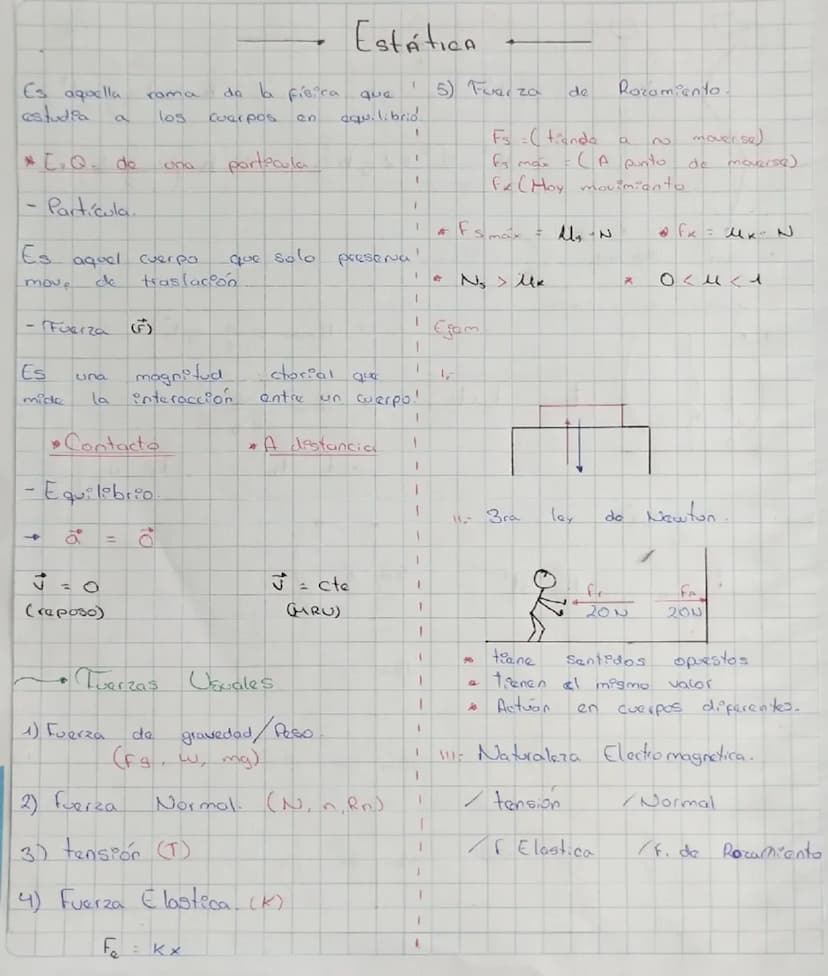 Estática
Es aquella rama de la física que
estudia a los cuerpos en equilibrio.
* E.Q. de una partícula
- Partícula.
Es aquel cuerpo que solo preserva
mov. de traslación.
- Fuerza (F⃗)
Es una magnitud ctorial que
mide la interacción entre un cuerpo.
* Contacto * A distancia
- Equilibrio.
→ a⃗ = 0⃗
v⃗ = 0 v⃗ = cte
(reposo) (MRU)
Fuerzas Usuales
1) Fuerza de gravedad/Peso.
(Fg, W, mg)
2) Fuerza Normal. (N, n, Rn)
3) tensión (T)
4) Fuerza Elastica. (K)
Fe = Kx
5) Fuerza de Rozamiento.
Fs = (tiende a no moverse)
Fs máx = (A punto de moverse)
Fk (Hay movimiento
* Fs máx = μs · N * Fk = μk · N
* Ns > μk * 0 < μ < 1
Ejem
I.-
II.- 3ra ley de Newton.
20N 20N
* tiene sentidos opuestos
* tienen el mismo valor
* Actúan en cuerpos diferentes.
III.- Naturaleza Electromagnetica.
/ tensión / Normal
/ F Elastica / F. de Rozamiento